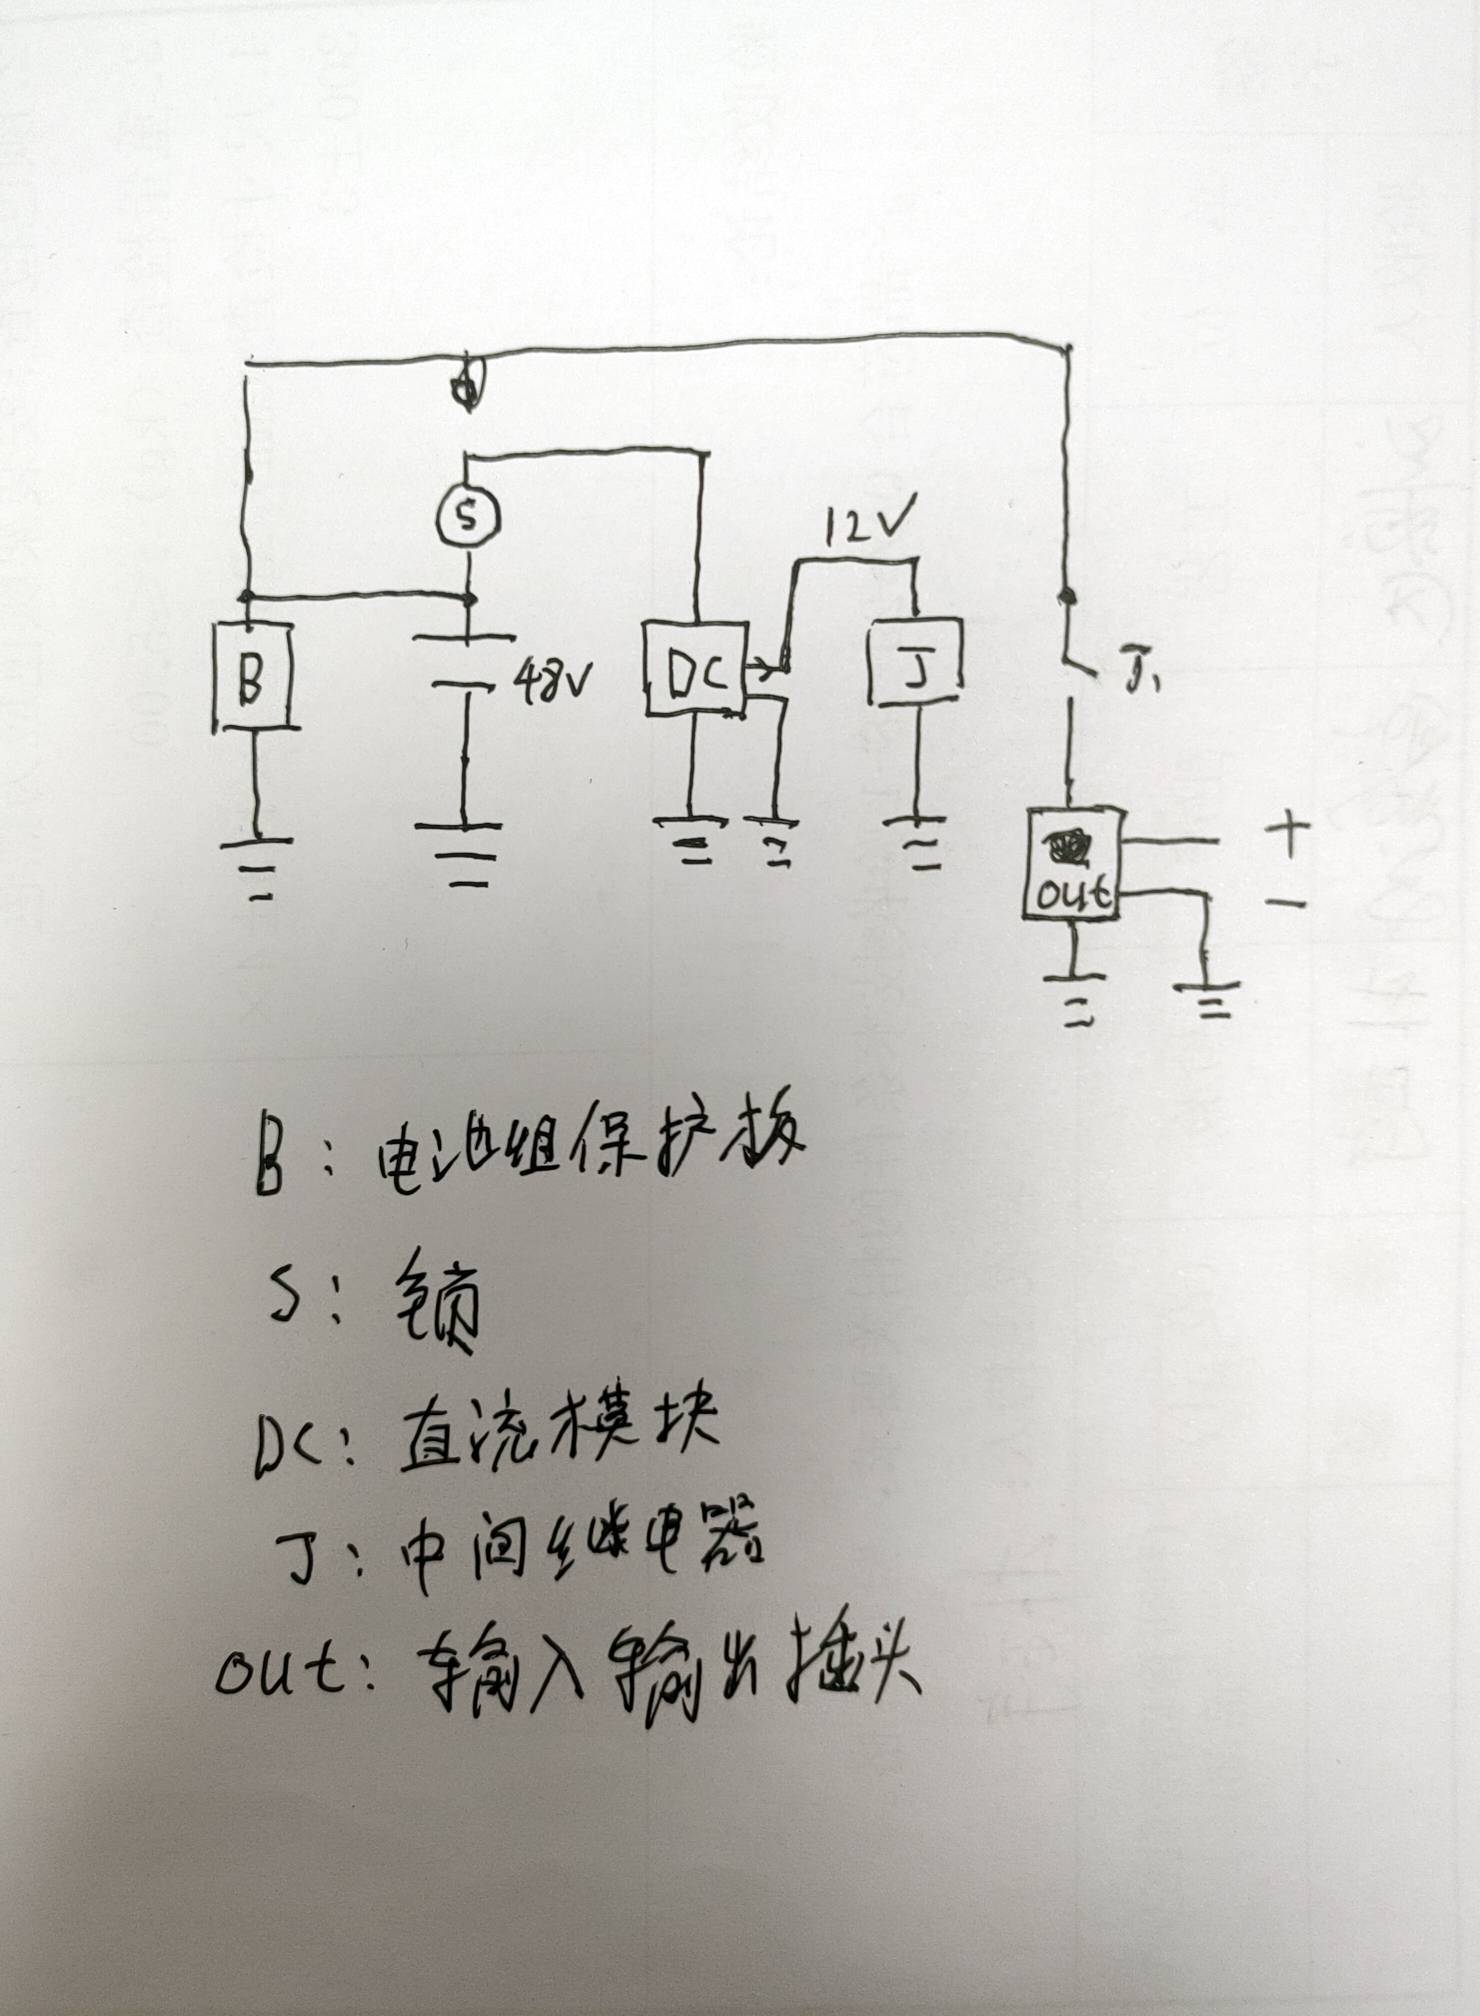 S
12V
B
48V
DC
J
J₁
+
out
-
B：电池组保护板
S：锁
DC：直流模块
J：中间继电器
out：输入输出插头